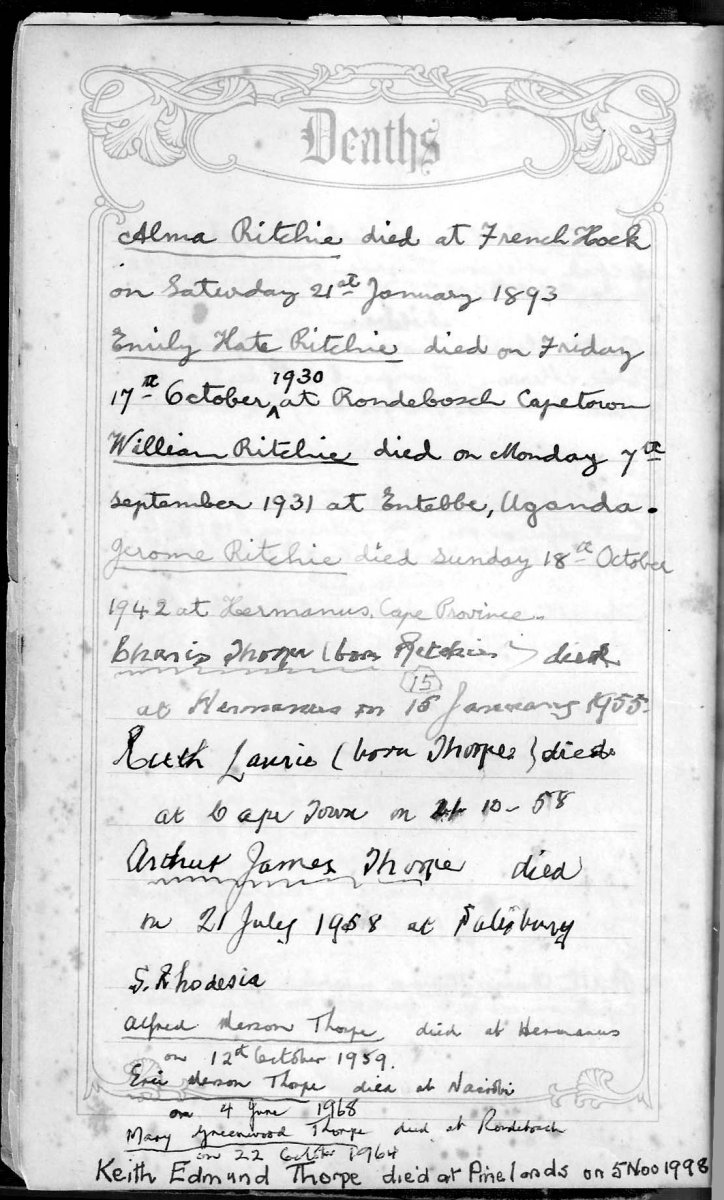 Deaths
Alma Ritchie died at French Hoek
on Saturday 21st January 1893
Emily Kate Ritchie died on Friday
1930
17th October, ^ at Rondebosch Capetown
William Ritchie died on Monday 7th
September 1931 at Entebbe, Uganda.
Jerome Ritchie died Sunday 18th October
1942 at Hermanus, Cape Province.
Charis Thorpe (born Ritchie) died
15
at Hermanus on January 1955.
Ruth Laurie (born Thorpe) died
at Cape Town on 10-58
Arthur James Thorpe died
on 21 July 1958 at Salisbury
S. Rhodesia
Alfred Merson Thorpe died at Hermanus
on 12th October 1959.
Eric Merson Thorpe died at Nairobi
on 4 June 1968
Mary Greenwood Thorpe died at Rondebosch
on 22 October 1964
Keith Edmund Thorpe died at Pinelands on 5 Nov 1998